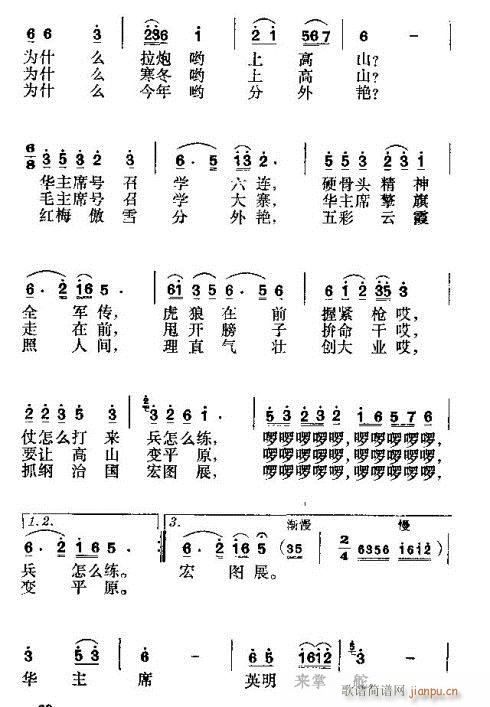 6 6 3 2361 2 1 567 6 -
为什么拉炮哟上高山?
为什么寒冬哟上高山?
为什么今年哟分外艳?
6/8 3 5 3 2 3 6· 5 13 2· 5 3 2 3 1
华主席号召学六连, 硬骨头精神
毛主席号召学大寨, 华主席擎旗
红梅傲雪分外艳, 五彩云霞
6· 2 16 5· 61 3 5 6· 5 1 6· 1 2 35 3
全军传, 虎狼在前握紧枪哎,
走在前, 甩开膀子拚命干哎,
照人间, 理直气壮创大业哎,
2 2 3 5 3 3 2 6 1· 5 3 2 3 2 1 6 5 7 6
仗怎么打来兵怎么练, 啰啰啰啰啰,啰啰啰啰啰,
要让高山变平原, 啰啰啰啰啰,啰啰啰啰啰,
抓纲治国宏图展, 啰啰啰啰啰,啰啰啰啰啰,
1.2. 3. 渐慢 慢
6· 2 1 6 5· 6· 2 16 5· (35 2/4 6356 1612)
兵怎么练。 宏图展。
变平原。
3 5 3 6 - 6 5 1612 3 -
华主席英明来掌舵
歌谱简谱网
jianpu.cn